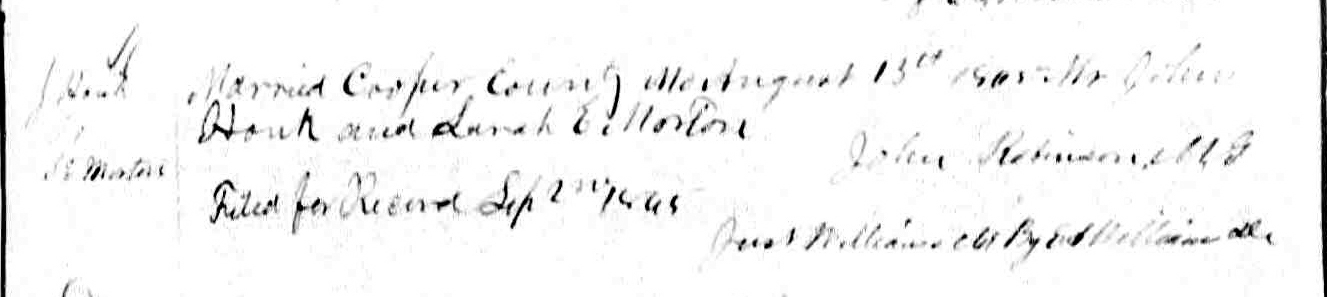 J Houk
Married Cooper County Mo August 13th 1865 Mr John
Houk and Sarah E. Morton
S E Morton
John Robinson M G
Filed for Record Sep 2nd 1865
Williams Clk By Williams DC